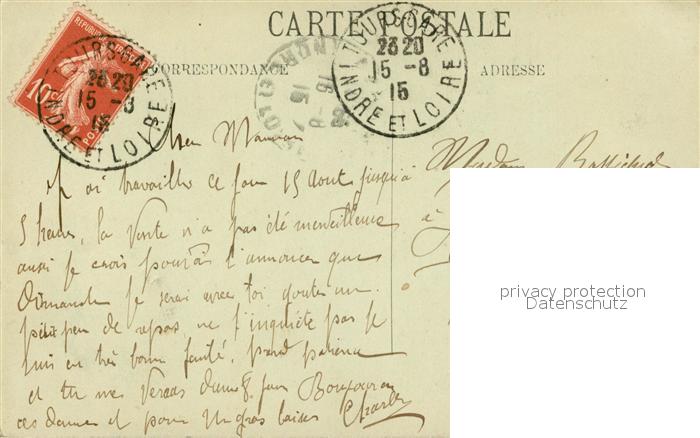 CARTE POSTALE
CORRESPONDANCE
ADRESSE
REPUBLIQUE
10c
POSTES
TOURS-GARE
23 20
15 -8
15
INDRE ET LOIRE
TOURS-GARE
23 20
15 -8
15
INDRE ET LOIRE
16 -8
15
Chère Maman
J'ai travaillé ce jour 15 Aout jusqu'à
5 heures, la Vente n'a pas été merveilleuse
aussi je crois pouvoir t'annoncer que
Dimanche je serai avec toi goûter un
petit peu de repos, ne t'inquiète pas je
suis en très bonne santé, prend patience
et tu me verras dans 8 jours Bonjour a
ces dames et pour un gros baiser Charles
Madame
à
privacy protection
Datenschutz